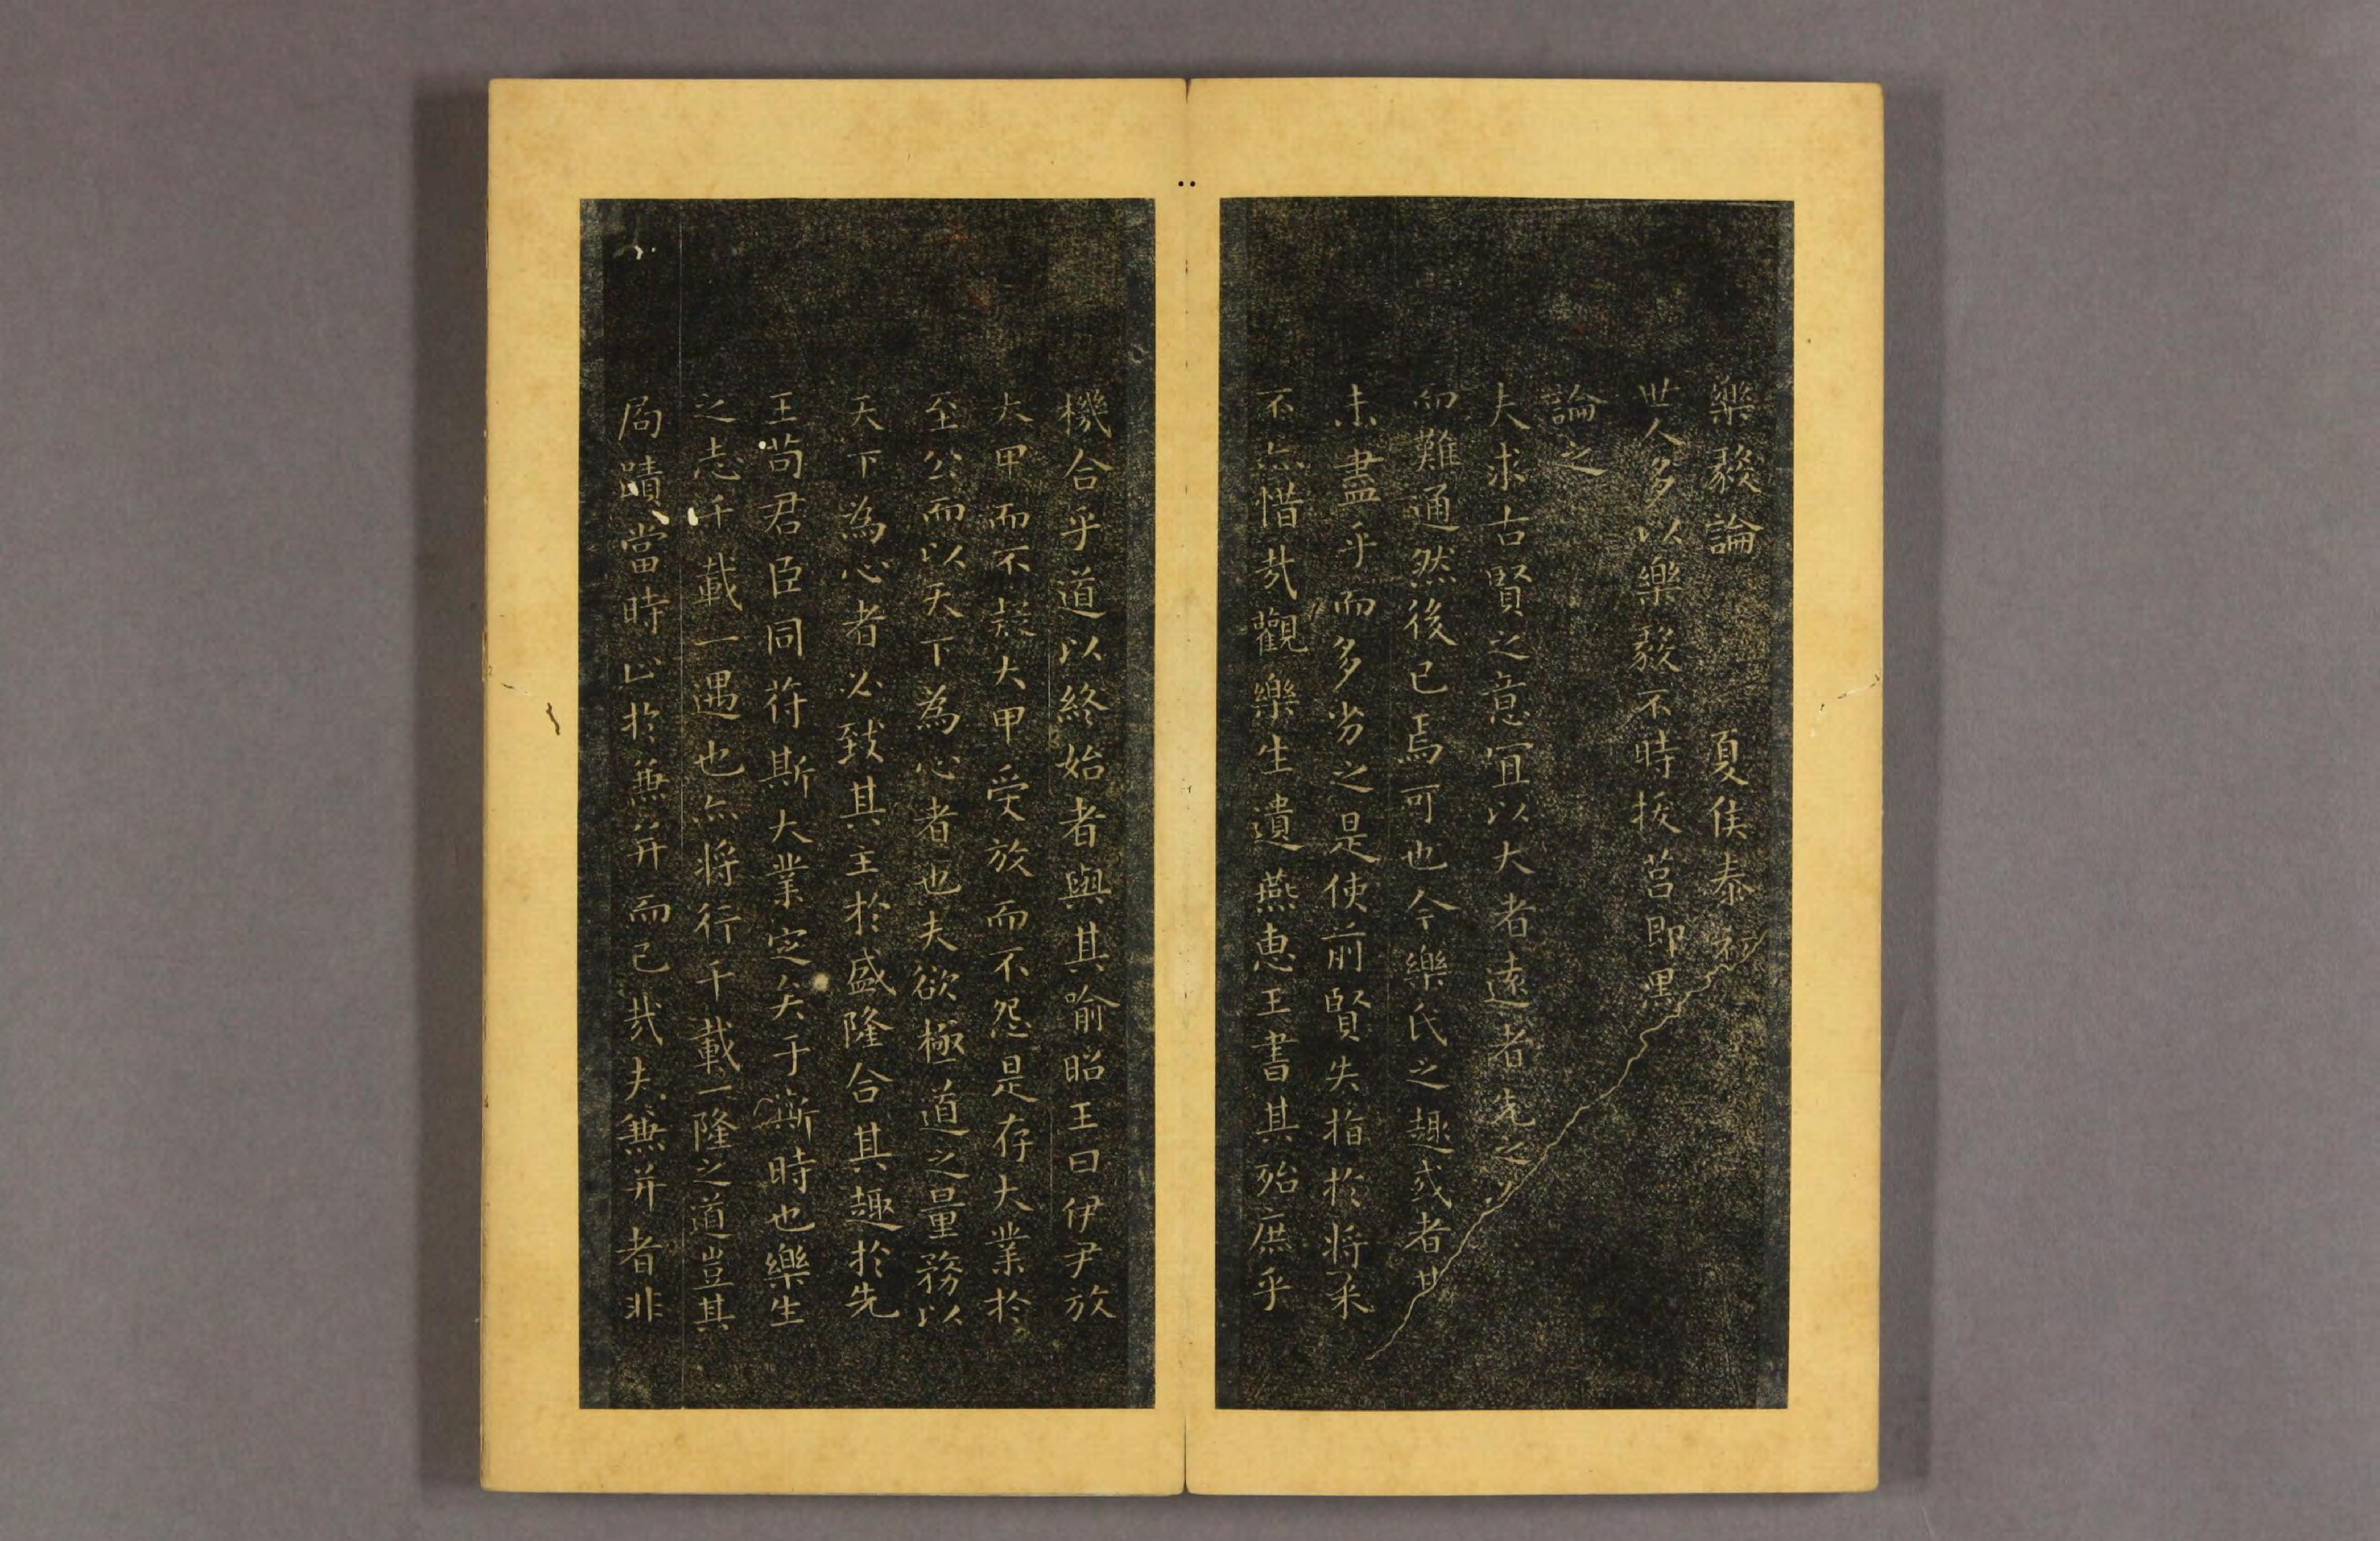 樂毅論 夏侯泰初
世人多以樂毅不時拔莒即墨
論之
夫求古賢之意冝以大者遠者先之
而難通然後已焉可也今樂氏之趣或者其
未盡乎而多劣之是使前賢失指於将来
不亦惜哉觀樂生遺燕惠王書其殆庶乎
機合乎道以終始者與其喻昭王曰伊尹放
大甲而不疑大甲受放而不怨是存大業於
至公而以天下為心者也夫欲極道之量務以
天下為心者必致其主於盛隆合其趣於先
王苟君臣同符斯大業定矣于斯時也樂生
之志千載一遇也亦将行千載一隆之道豈其
局蹟當時止於兼并而已哉夫兼并者非